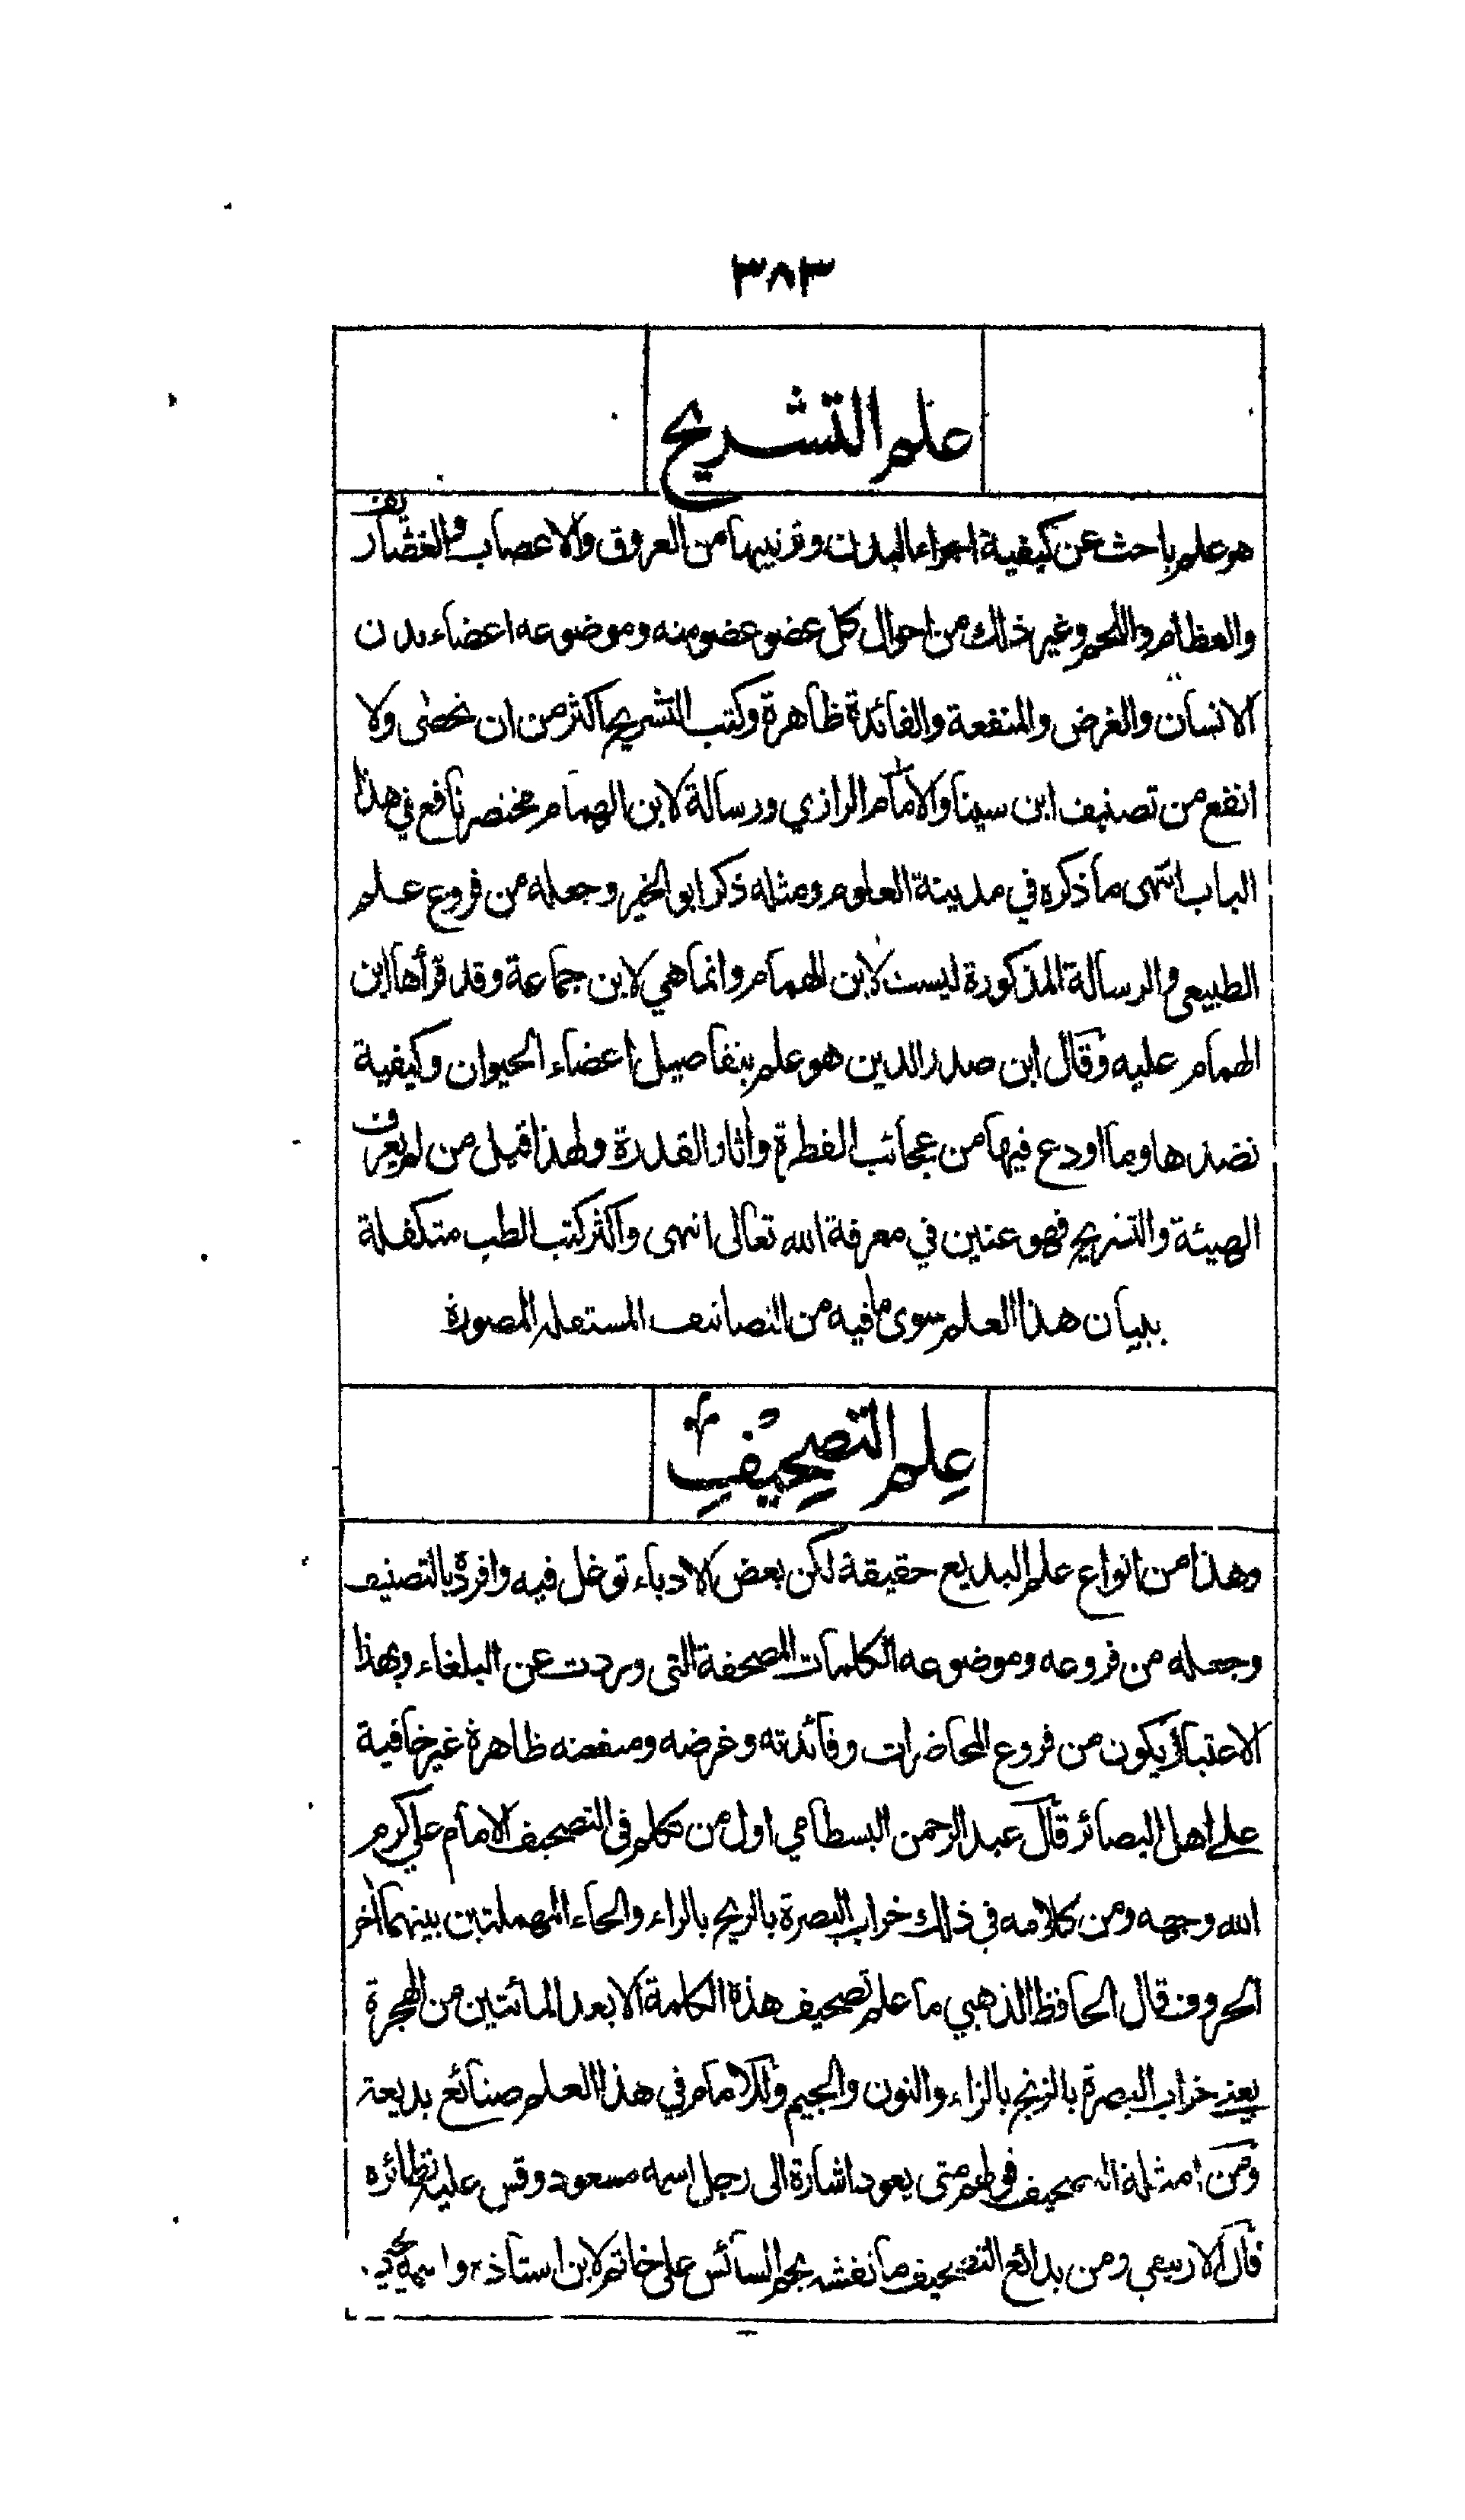 ٣٨٣
علم التشريح
هو علم باحث عن كيفية اجزاء البدن وترتيبها من العروق والاعصاب والغضاريف
والعظام واللحم وغير ذلك من احوال كل عضو عضو منه وموضوعه اعضاء بدن
الانسان والغرض والمنفعة والفائدة ظاهرة وكتب التشريح اكثر من ان تحصى ولا
انفع من تصنيف ابن سينا والامام الرازي ورسالة لابن الهمام مختصر نافع في هذا
الباب انتهى ما ذكره في مدينة العلوم ومثله ذكر ابو الخير وجعله من فروع علم
الطبيعي والرسالة المذكورة ليست لابن الهمام وانما هي لابن جماعة وقد قرأها ابن
الهمام عليه وقال ابن صدر الدين هو علم بتفاصيل اعضاء الحيوان وكيفية
نضدها وما اودع فيها من عجائب الفطرة واثار القدرة ولهذا قيل من لم يعرف
الهيئة والتشريح فهو عنين في معرفة الله تعالى انتهى واكثر كتب الطب متكفلة
ببيان هذا العلم سوى ما فيه من التصانيف المستقلة المصورة
علم التصحيف
وهذا من انواع علم البديع حقيقة لكن بعض الادباء توغل فيه وافرده بالتصنيف
وجعله من فروعه وموضوعه الكلمات المصحفة التي وردت عن البلغاء وبهذا
الاعتبار يكون من فروع المحاضرات وفائدته وغرضه ومنفعته ظاهرة غير خافية
على اهل البصائر قال عبد الرحمن البسطامي اول من تكلم في التصحيف الامام علي كرم
الله وجهه ومن كلامه في ذلك خراب البصرة بالريح بالراء والحاء المهملتين بينهما آخر
الحروف قال الحافظ الذهبي ما علم تصحيف هذه الكلمة الا بعد المائتين من الهجرة
يعني خراب البصرة بالزنج بالزاء والنون والجيم وللامام في هذا العلم صنائع بديعة
ومن امثلة التصحيف قولهم متى يعود اشارة الى رجل اسمه مسعود وقس عليه نظائره
قال الارنيقي ومن بدائع التصحيف ما نقشه نجم السائس على خاتم لابن استاذه واسمه